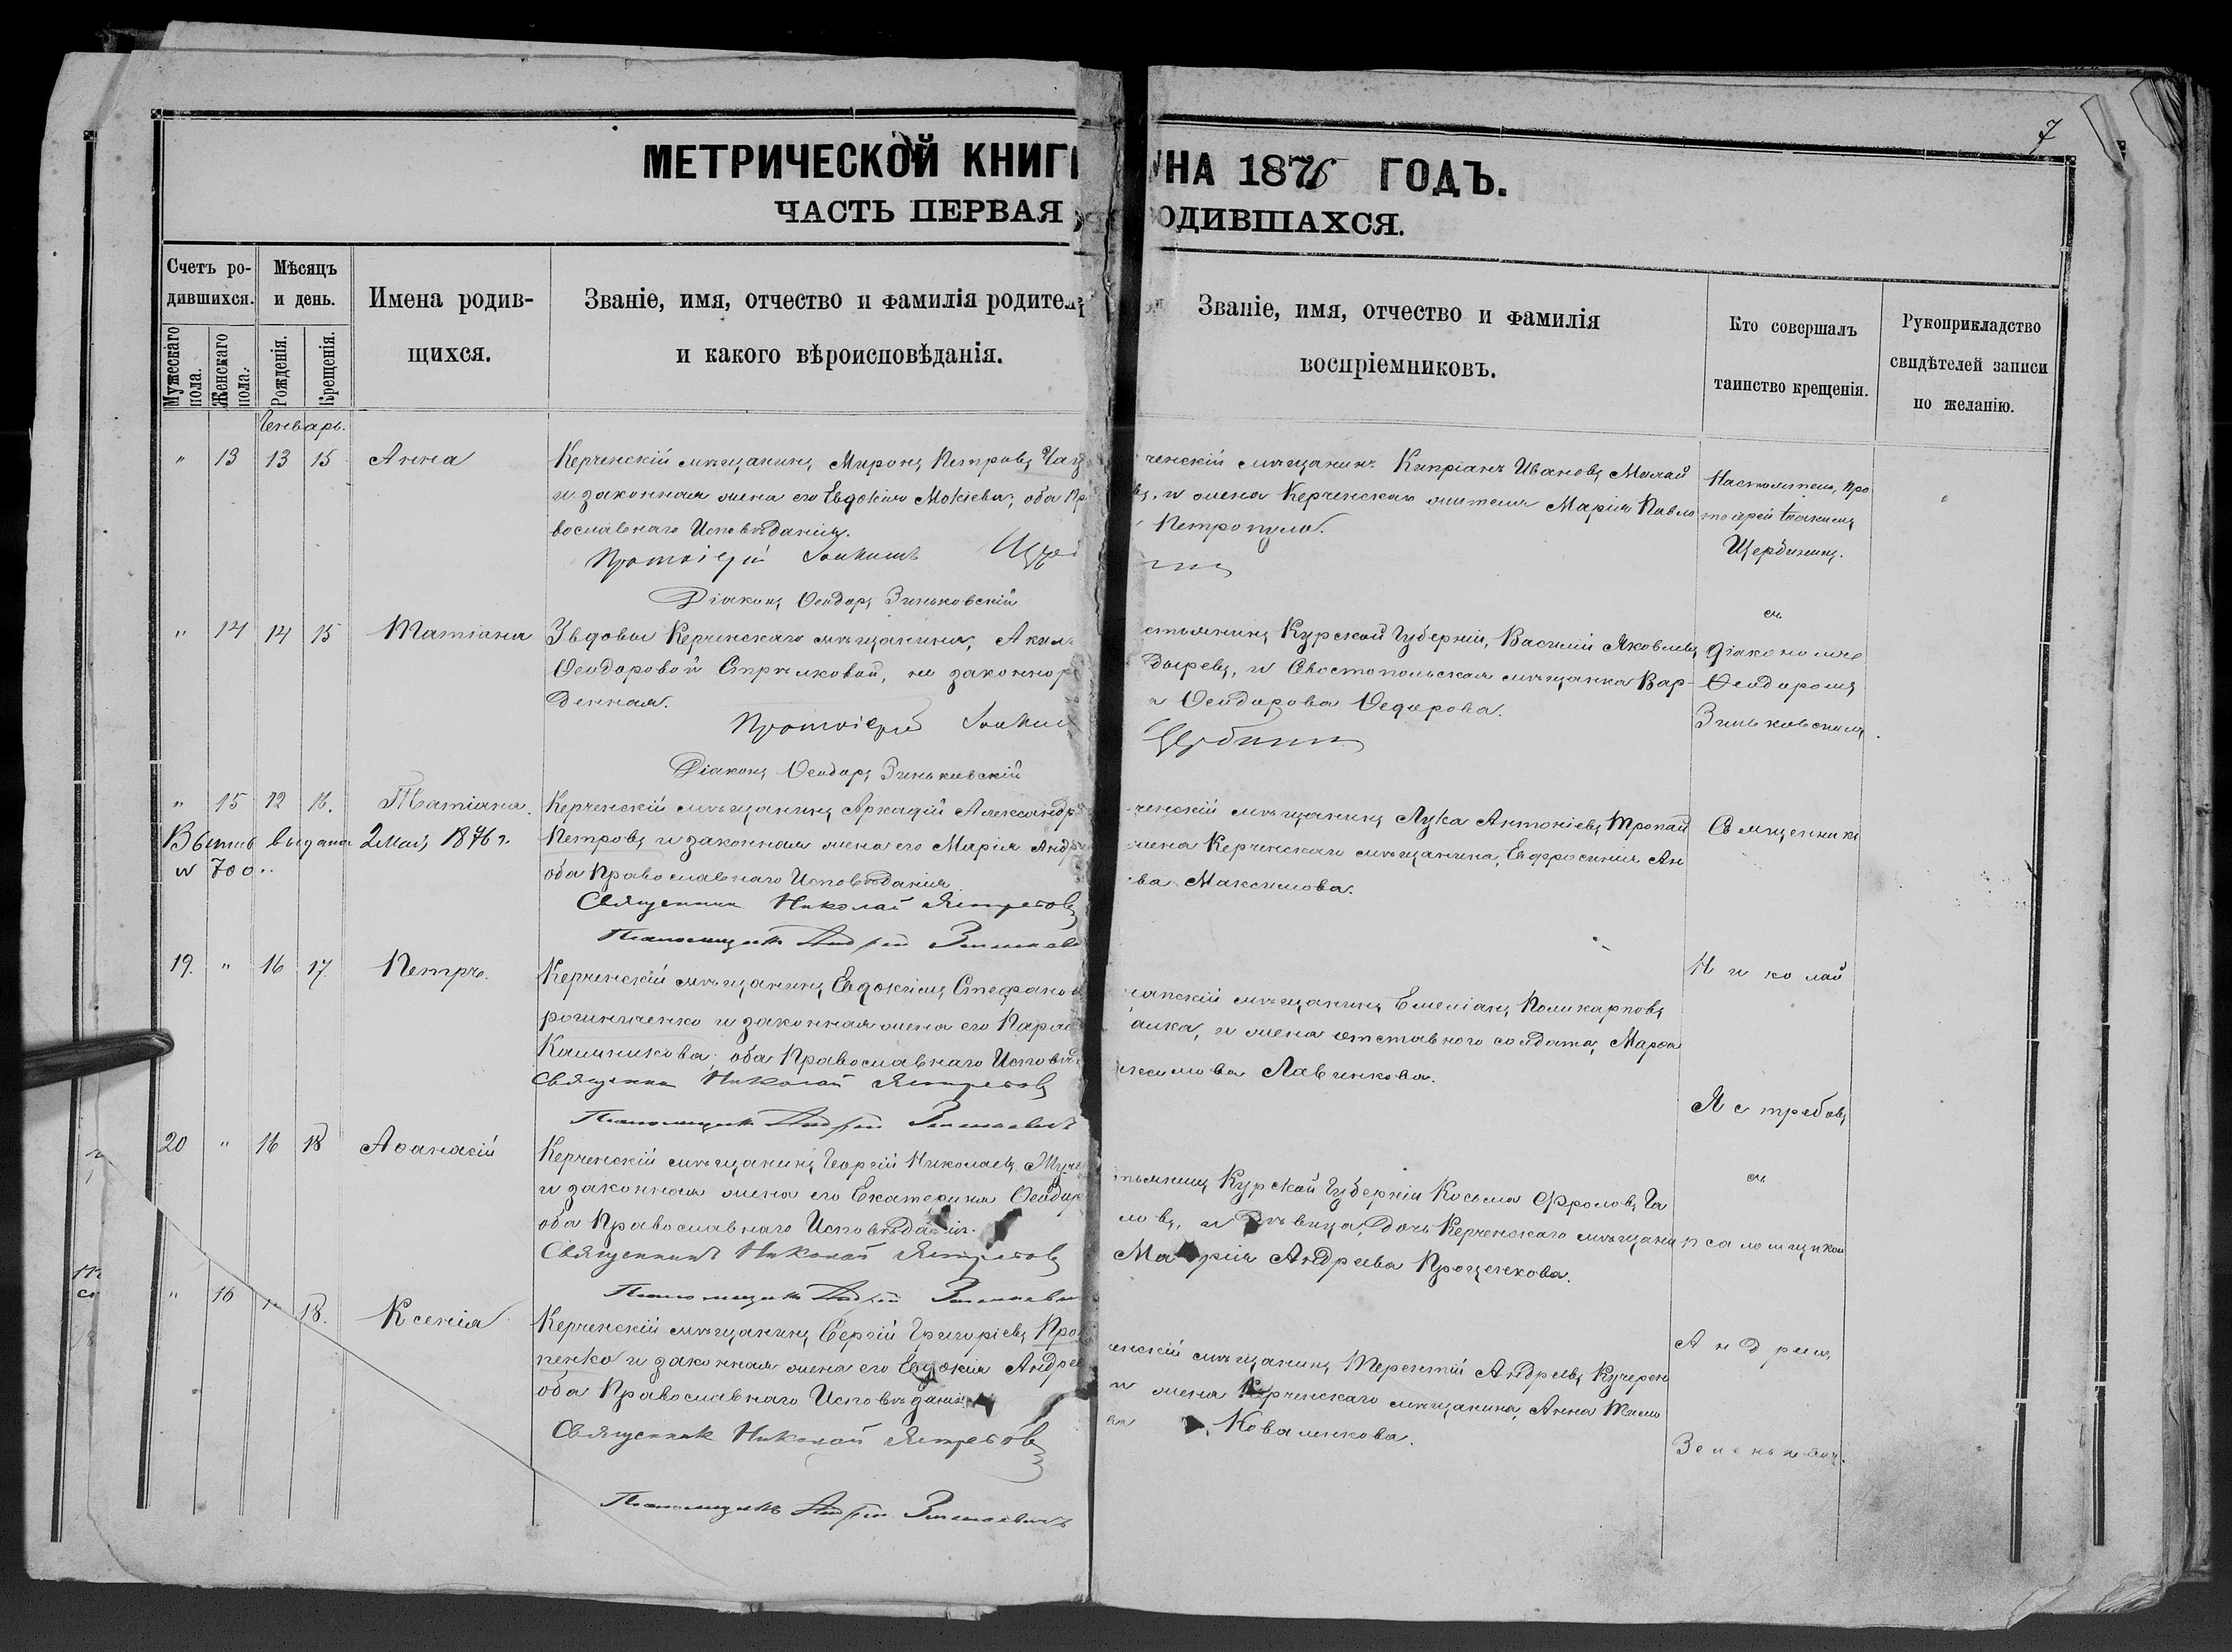 7
МЕТРИЧЕСКОЙ КНИГИ НА 1876 ГОДЪ.
ЧАСТЬ ПЕРВАЯ ОДИВШАХСЯ.
Счетъ ро-
дившихся.
Мужескаго пола.
Женскаго пола.
Мѣсяцъ
и день.
Рожденія.
Крещенія.
Имена родив-
щихся.
Званіе, имя, отчество и фамилія родител
и какого вѣроисповѣданія.
Званіе, имя, отчество и фамилія
воспріемниковъ.
Кто совершалъ
таинство крещенія.
Рукоприкладство
свидѣтелей записи
по желанію.
Генварь.
" 13 13 15 Анна
Керченскій мѣщанинъ Миронъ Петровъ
и законная жена его Евдокія Мокіева; оба Пр
вославнаго Исповѣданія.
Протоіерей Іоакимъ
Діаконъ Ѳеодоръ Зиньковскій
ченскій мѣщанинъ Кипріанъ Ивановъ Малай
въ, и жена Керченскаго жителя Марія Павло
Петропуло.
Настоятель, про
тоіерей Іоакимъ
Щербининъ.
" 14 14 15 Татіана
Вдовы Керченскаго мѣщанина, Акил
Ѳеодоровой Стрѣлковой, не законнор
денная.
Протоіерей Іоаким
Діаконъ Ѳеодоръ Зиньковскій
стьянинъ Курской Губерніи, Василій Яковлевъ
дыревъ, и Севостопольская мѣщанка Вар-
а Ѳеодорова Ѳедорова.
съ
діакономъ
Ѳеодоромъ
Зиньковскимъ.
" 15 12 16. Татіана.
Выпись выдана 2 Мая 1876 г.
№ 700.
Керченскій мѣщанинъ Аркадій Александр
Петровъ и законная жена его Марія Андр
оба Православнаго Исповѣданія
Священникъ Николай Ястребовъ
Псаломщикъ Андрей
ченскій мѣщанинъ Лука Антоніевъ Тропай
жена Керченскаго мѣщанина, Евфросинія Ан
ва Максимова.
Священникъ
19. " 16 17. Петръ.
Керченскій мѣщанинъ Евдокимъ Стефанов
рошниченко и законная жена его Парас
Калиникова; оба Православнаго Исповѣ
Священникъ Николай Ястребовъ
Псаломщикъ Андрей
мѣщанинъ Емеліанъ Поликарповъ
и жена отставного солдата, Марѳа
ксимова Лавинкова.
Николай
Ястребовъ
20 " 16 18 Аѳанасій
Керченскій мѣщанинъ Георгій Николаевъ
и законная жена его Екатерина Ѳеодор
оба Православнаго Исповѣданія.
Священникъ Николай Ястребовъ
Псаломщикъ Андрей
тьянинъ Курской Губерніи Косьма Фроловъ Га
ловъ, и дѣвица, дочь Керченскаго мѣщани
Марія Андреева Проценкова.
съ
псаломщиком
" 16 18. Ксенія
Керченскій мѣщанинъ Сергій Григоріевъ Про
пенко и законная жена его Евдокія Андре
оба Православнаго Исповѣданія
Священникъ Николай Ястребовъ
Псаломщикъ Андрей
енскій мѣщанинъ Терентій Андреевъ Кучерен
и жена Керченскаго мѣщанина, Анна Тимо
Коваленкова.
Андреемъ